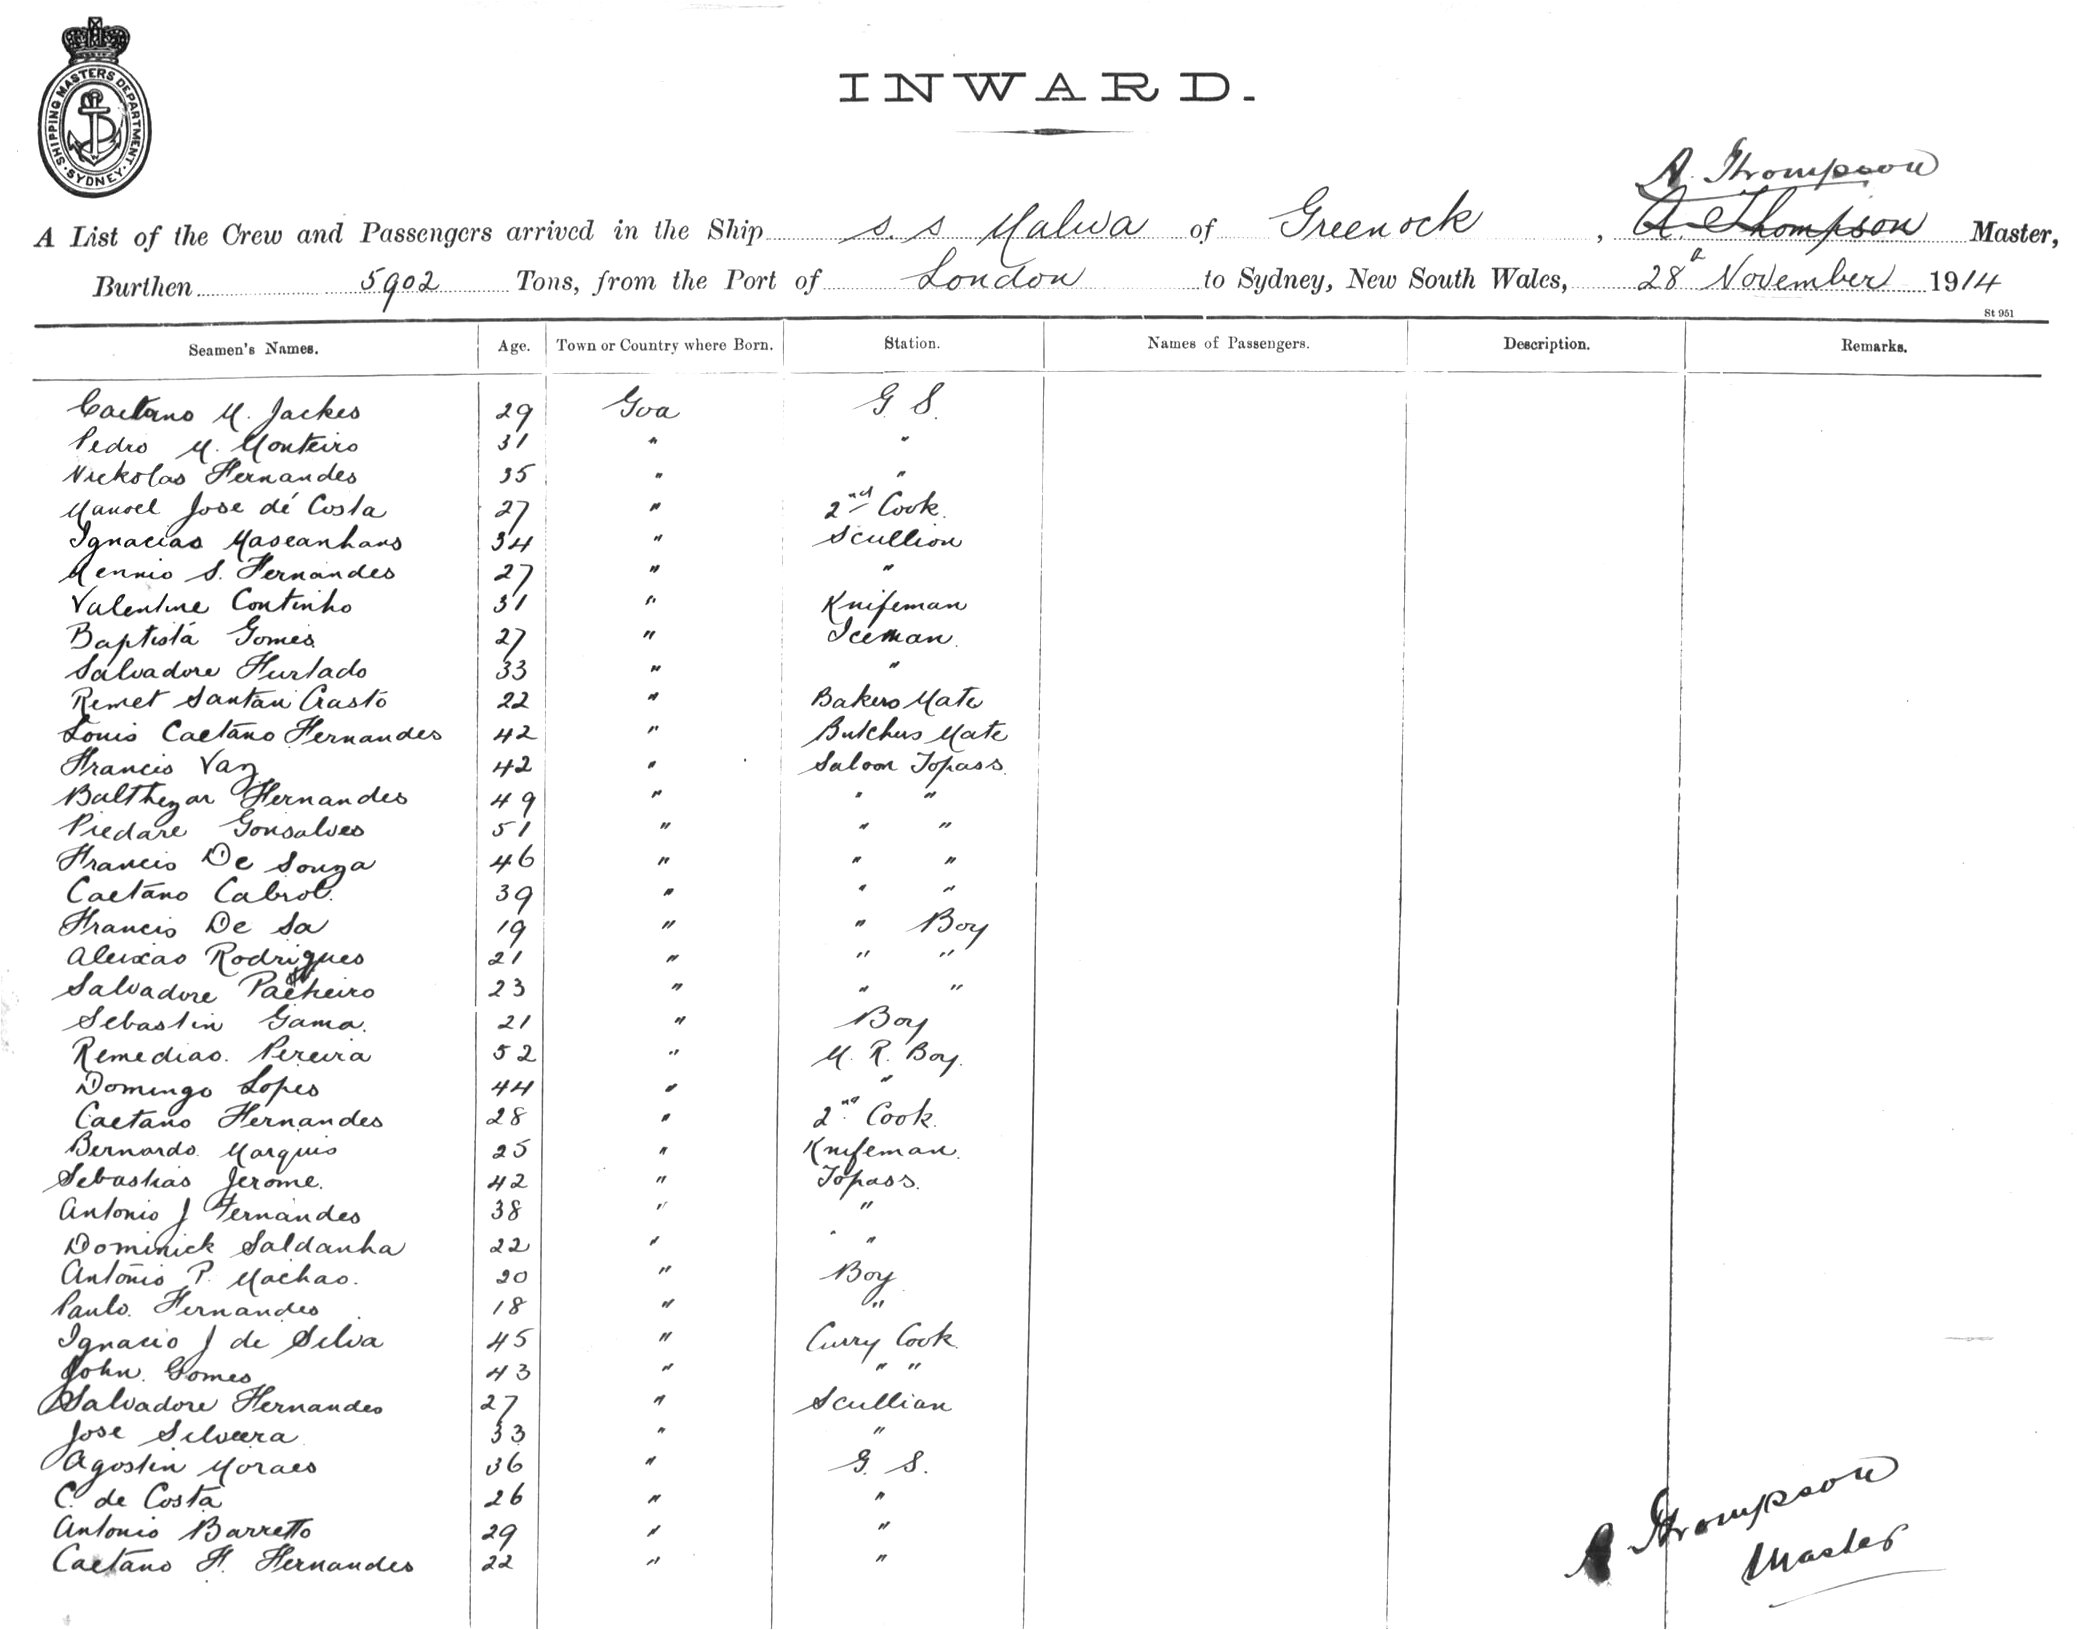 SHIPPING MASTERS DEPARTMENT. SYDNEY.
INWARD.
A. Thompson
A List of the Crew and Passengers arrived in the Ship s.s Malwa of Greenock, A. Thompson Master,
Burthen 5902 Tons, from the Port of London to Sydney, New South Wales, 28th November 1914
St 951
Seamen's Names. Age. Town or Country where Born. Station. Names of Passengers. Description. Remarks.
Caetano M. Jackes 29 Goa G. S.
Pedro M. Monteiro 31 " "
Nickolas Fernandes 35 " "
Manoel Jose dé Costa 27 " 2nd Cook.
Ignacias Mascanhans 34 " Scullion
Mennio S. Fernandes 27 " "
Valentine Continho 31 " Knifeman
Baptista Gomes 27 " Iceman.
Salvadore Furtado 33 " "
Remet Santan Crasto 22 " Bakers Mate
Louis Caetano Fernandes 42 " Butchers Mate
Francis Vaz 42 " Saloon Topass.
Balthezar Fernandes 49 " " "
Piedare Gonsalves 51 " " "
Francis De Souza 46 " " "
Caetano Cabrol. 39 " " "
Francis De Sa 19 " " Boy
Aleixas Rodrigues 21 " " "
Salvadore Pacheiro 23 " " "
Sebastin Gama. 21 " Boy
Remedias. Pereira 52 " M. R. Boy.
Domingo Lopes 44 " "
Caetano Fernandes 28 " 2nd Cook.
Bernardo. Marquis 25 " Knifeman.
Sebastias Jerome. 42 " Topass.
Antonio J Fernandes 38 " "
Dominick Saldanha 22 " " "
Antonio P. Machao. 20 " Boy
Paulo. Fernandes 18 " "
Ignacio J de Silva 45 " Curry Cook.
John. Gomes 43 " " "
Salvadore Fernandes 27 " Scullian
Jose Silveera 33 " "
Agostin Moraes 36 " G. S.
C. de Costa 26 " "
Antonio Barretto 29 " "
Caetano F. Fernandes 22 " "
A Thompson
Master